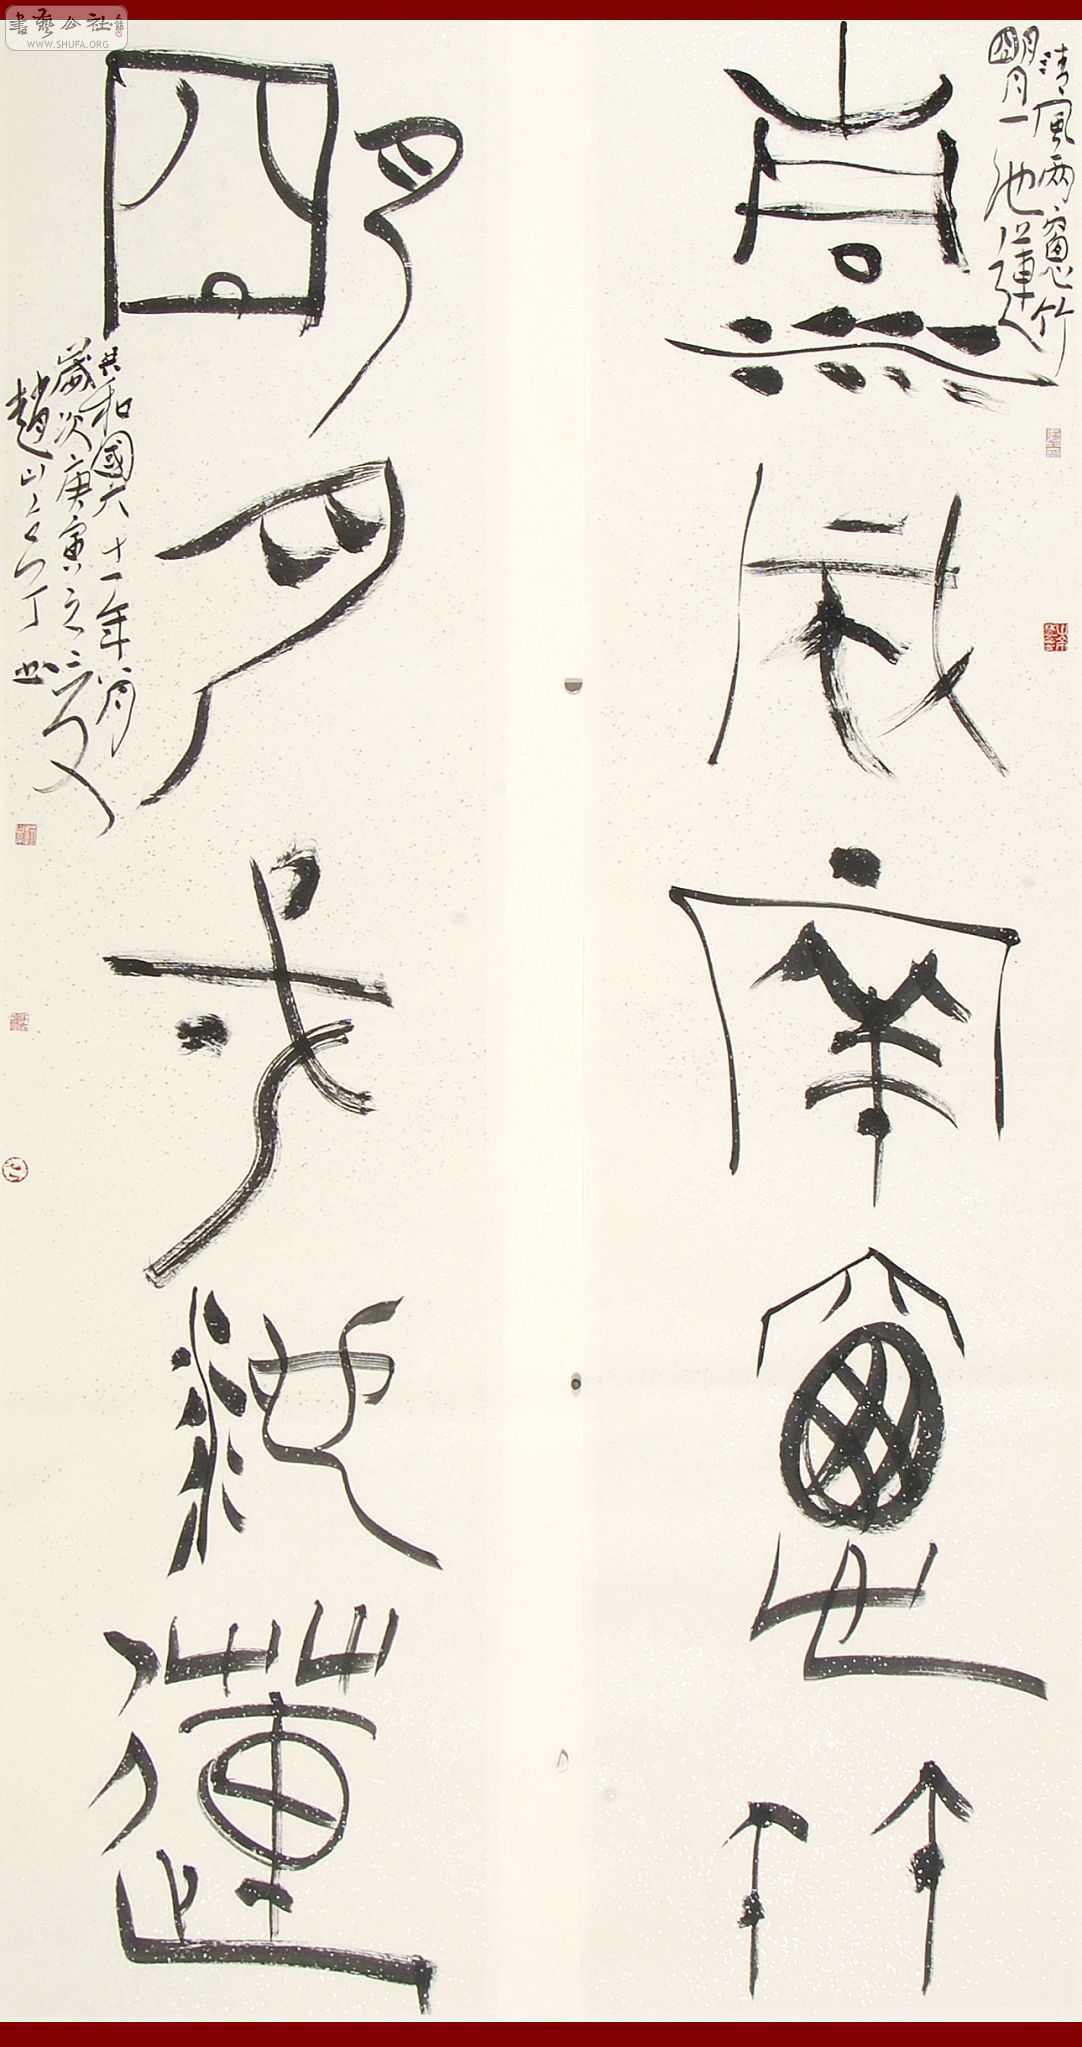 清風兩窗竹
明月一池蓮
清風兩窻竹
朙月一池蓮
共和國六十一年六月
歲次庚寅之
趙山
書藝公社
WWW.SHUFA.ORG